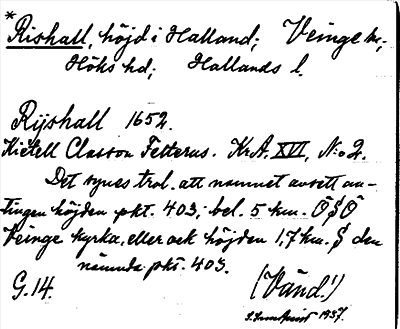 *Rishall, höjd i Halland; Veinge sn;
Höks hd; Hallands l.
Rijshall 1652.
Kietell Classon Felterus. Kr.A. XVI, N:o 2.
Det synes trol. att namnet avsett an-
tingen höjden pkt. 403, bel. 5 km. ÖSÖ
Veinge kyrka, eller ock höjden 1,7 km. S den
nämnda pkt. 403.
G. 14. (Vänd!)
1937.